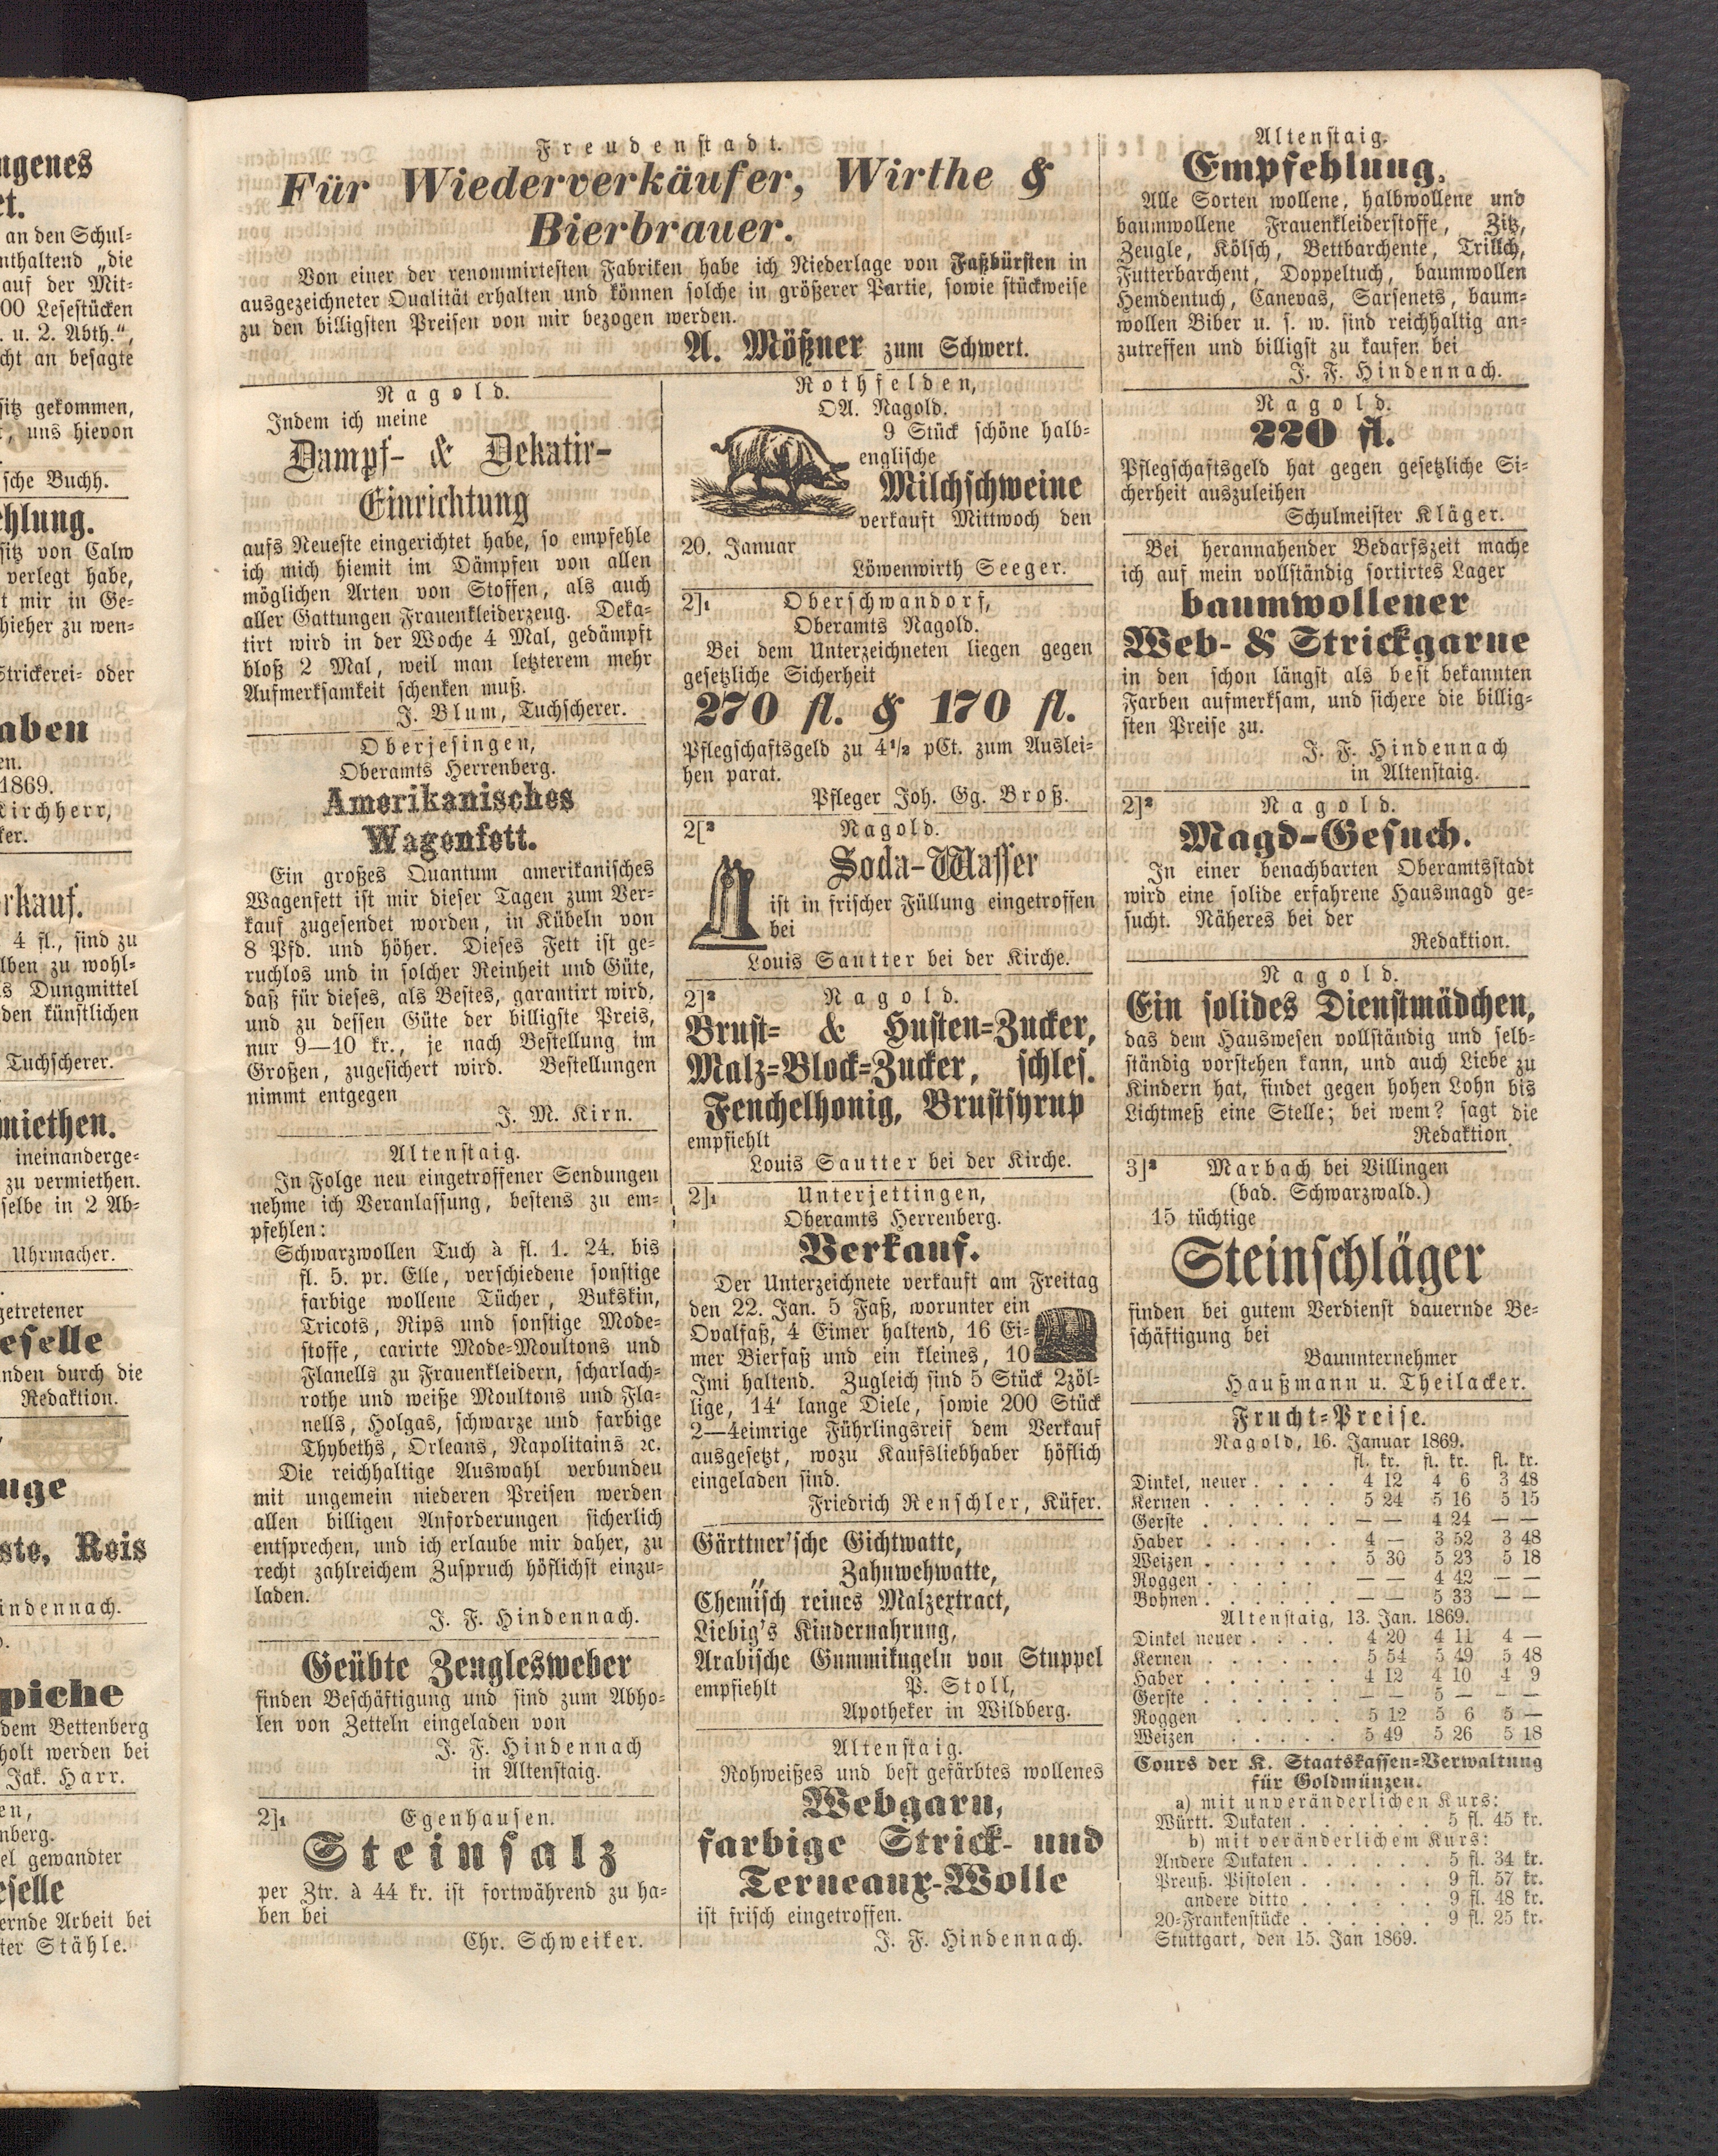 ngenes
et.
an den Schul-
nthaltend „die
auf der Mit-
00 Lesestücken
. u. 2. Abth.",
cht an besagte
sitz gekommen,
t, uns hievon
sche Buchh.
ehlung.
sitz von Calw
verlegt habe,
t mir in Ge-
hieher zu wen-
Strickerei- oder
aben
en.
1869.
Kirchherr,
ker.
rkauf.
4 fl., sind zu
lben zu wohl-
s Dungmittel
den künstlichen
Tuchscherer.
miethen.
ineinanderge-
zu vermiethen.
selbe in 2 Ab-
Uhrmacher.
getretener
eselle
nden durch die
Redaktion.
uge
ste, Reis
indennach.
piche
dem Bettenberg
holt werden bei
Jak. Harr.
en,
nberg.
el gewandter
eselle
ernde Arbeit bei
ter Stähle.
Freudenstadt.
Für Wiederverkäufer, Wirthe &
Bierbrauer.
Von einer der renommirtesten Fabriken habe ich Niederlage von Faßbürsten in
ausgezeichneter Qualität erhalten und können solche in größerer Partie, sowie stückweise
zu den billigsten Preisen von mir bezogen werden.
A. Mößner zum Schwert.
Nagold.
Indem ich meine
Dampf- & Dekatir-
Einrichtung
aufs Neueste eingerichtet habe, so empfehle
ich mich hiemit im Dämpfen von allen
möglichen Arten von Stoffen, als auch
aller Gattungen Frauenkleiderzeug. Deka-
tirt wird in der Woche 4 Mal, gedämpft
bloß 2 Mal, weil man letzterem mehr
Aufmerksamkeit schenken muß.
J. Blum, Tuchscherer.
Oberjesingen,
Oberamts Herrenberg.
Amerikanisches
Wagenfett.
Ein großes Quantum amerikanisches
Wagenfett ist mir dieser Tagen zum Ver-
kauf zugesendet worden, in Kübeln von
8 Pfd. und höher. Dieses Fett ist ge-
ruchlos und in solcher Reinheit und Güte,
daß für dieses, als Bestes, garantirt wird,
und zu dessen Güte der billigste Preis,
nur 9—10 kr., je nach Bestellung im
Großen, zugesichert wird. Bestellungen
nimmt entgegen
J. M. Kirn.
Altenstaig.
In Folge neu eingetroffener Sendungen
nehme ich Veranlassung, bestens zu em-
pfehlen:
Schwarzwollen Tuch à fl. 1. 24. bis
fl. 5. pr. Elle, verschiedene sonstige
farbige wollene Tücher, Bukskin,
Tricots, Rips und sonstige Mode-
stoffe, carirte Mode-Moultons und
Flanells zu Frauenkleidern, scharlach-
rothe und weiße Moultons und Fla-
nells, Holgas, schwarze und farbige
Thybeths, Orleans, Napolitains ꝛc.
Die reichhaltige Auswahl verbunden
mit ungemein niederen Preisen werden
allen billigen Anforderungen sicherlich
entsprechen, und ich erlaube mir daher, zu
recht zahlreichem Zuspruch höflichst einzu-
laden.
J. F. Hindennach.
Geübte Zeuglesweber
finden Beschäftigung und sind zum Abho-
len von Zetteln eingeladen von
J. F. Hindennach
in Altenstaig.
2]1 Egenhausen.
Steinsalz
per Ztr. à 44 kr. ist fortwährend zu ha-
ben bei
Chr. Schweiker.
Rothfelden,
OA. Nagold.
9 Stück schöne halb-
englische
Milchschweine
verkauft Mittwoch den
20. Januar
Löwenwirth Seeger.
2]1 Oberschwandorf,
Oberamts Nagold.
Bei dem Unterzeichneten liegen gegen
gesetzliche Sicherheit
270 fl. & 170 fl.
Pflegschaftsgeld zu 4½ pCt. zum Auslei-
hen parat.
Pfleger Joh. Gg. Broß.
2[2 Nagold.
Soda-Wasser
ist in frischer Füllung eingetroffen
bei
Louis Sautter bei der Kirche.
2]2 Nagold.
Brust- & Husten-Zucker,
Malz-Block-Zucker, schles.
Fenchelhonig, Brustsyrup
empfiehlt
Louis Sautter bei der Kirche.
2]1 Unterjettingen,
Oberamts Herrenberg.
Verkauf.
Der Unterzeichnete verkauft am Freitag
den 22. Jan. 5 Faß, worunter ein
Ovalfaß, 4 Eimer haltend, 16 Ei-
mer Bierfaß und ein kleines, 10
Imi haltend. Zugleich sind 5 Stück 2zöl-
lige, 14' lange Diele, sowie 200 Stück
2—4eimrige Führlingsreif dem Verkauf
ausgesetzt, wozu Kaufsliebhaber höflich
eingeladen sind.
Friedrich Renschler, Küfer.
Gärttner'sche Gichtwatte,
„ Zahnwehwatte,
Chemisch reines Malzextract,
Liebig's Kindernahrung,
Arabische Gummikugeln von Stuppel
empfiehlt P. Stoll,
Apotheker in Wildberg.
Altenstaig.
Rohweißes und best gefärbtes wollenes
Webgarn,
farbige Strick- und
Terneaux-Wolle
ist frisch eingetroffen.
J. F. Hindennach.
Altenstaig.
Empfehlung.
Alle Sorten wollene, halbwollene und
baumwollene Frauenkleiderstoffe, Zitz,
Zeugle, Kölsch, Bettbarchente, Trillch,
Futterbarchent, Doppeltuch, baumwollen
Hemdentuch, Canevas, Sarsenets, baum-
wollen Biber u. s. w. sind reichhaltig an-
zutreffen und billigst zu kaufen bei
J. F. Hindennach.
Nagold.
220 fl.
Pflegschaftsgeld hat gegen gesetzliche Si-
cherheit auszuleihen
Schulmeister Kläger.
Bei herannahender Bedarfszeit mache
ich auf mein vollständig sortirtes Lager
baumwollener
Web- & Strickgarne
in den schon längst als best bekannten
Farben aufmerksam, und sichere die billig-
sten Preise zu.
J. F. Hindennach
in Altenstaig.
2]2 Nagold.
Magd-Gesuch.
In einer benachbarten Oberamtsstadt
wird eine solide erfahrene Hausmagd ge-
sucht. Näheres bei der
Redaktion.
Nagold.
Ein solides Dienstmädchen,
das dem Hauswesen vollständig und selb-
ständig vorstehen kann, und auch Liebe zu
Kindern hat, findet gegen hohen Lohn bis
Lichtmeß eine Stelle; bei wem? sagt die
Redaktion.
3]2 Marbach bei Villingen
(bad. Schwarzwald.)
15 tüchtige
Steinschläger
finden bei gutem Verdienst dauernde Be-
schäftigung bei
Bauunternehmer
Haußmann u. Theilacker.
Frucht-Preise.
Nagold, 16. Januar 1869.
fl. kr. fl. kr. fl. kr.
Dinkel, neuer . . . . 4 12 4 6 3 48
Kernen . . . . . . 5 24 5 16 5 15
Gerste . . . . . . — — 4 24 — —
Haber . . . . . . 4 — 3 52 3 48
Weizen . . . . . . 5 30 5 23 5 18
Roggen . . . . . — — 4 42 — —
Bohnen . . . . . . — — 5 33 — —
Altenstaig, 13. Jan. 1869.
Dinkel neuer . . . . 4 20 4 11 4 —
Kernen . . . . . . 5 54 5 49 5 48
Haber . . . . . . 4 12 4 10 4 9
Gerste . . . . . . — — 5 — — —
Roggen . . . . . 5 12 5 6 5 —
Weizen . . . . . 5 49 5 26 5 18
Cours der K. Staatskassen-Verwaltung
für Goldmünzen.
a) mit unveränderlichen Kurs:
Württ. Dukaten . . . . . . 5 fl. 45 kr.
b) mit veränderlichem Kurs:
Andere Dukaten . . . . . . 5 fl. 34 kr.
Preuß. Pistolen . . . . . . 9 fl. 57 kr.
andere ditto . . . . . . 9 fl. 48 kr.
20-Frankenstücke . . . . . . 9 fl. 25 kr.
Stuttgart, den 15. Jan 1869.